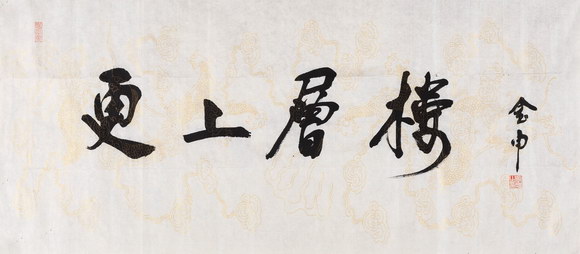 更上層樓
金申